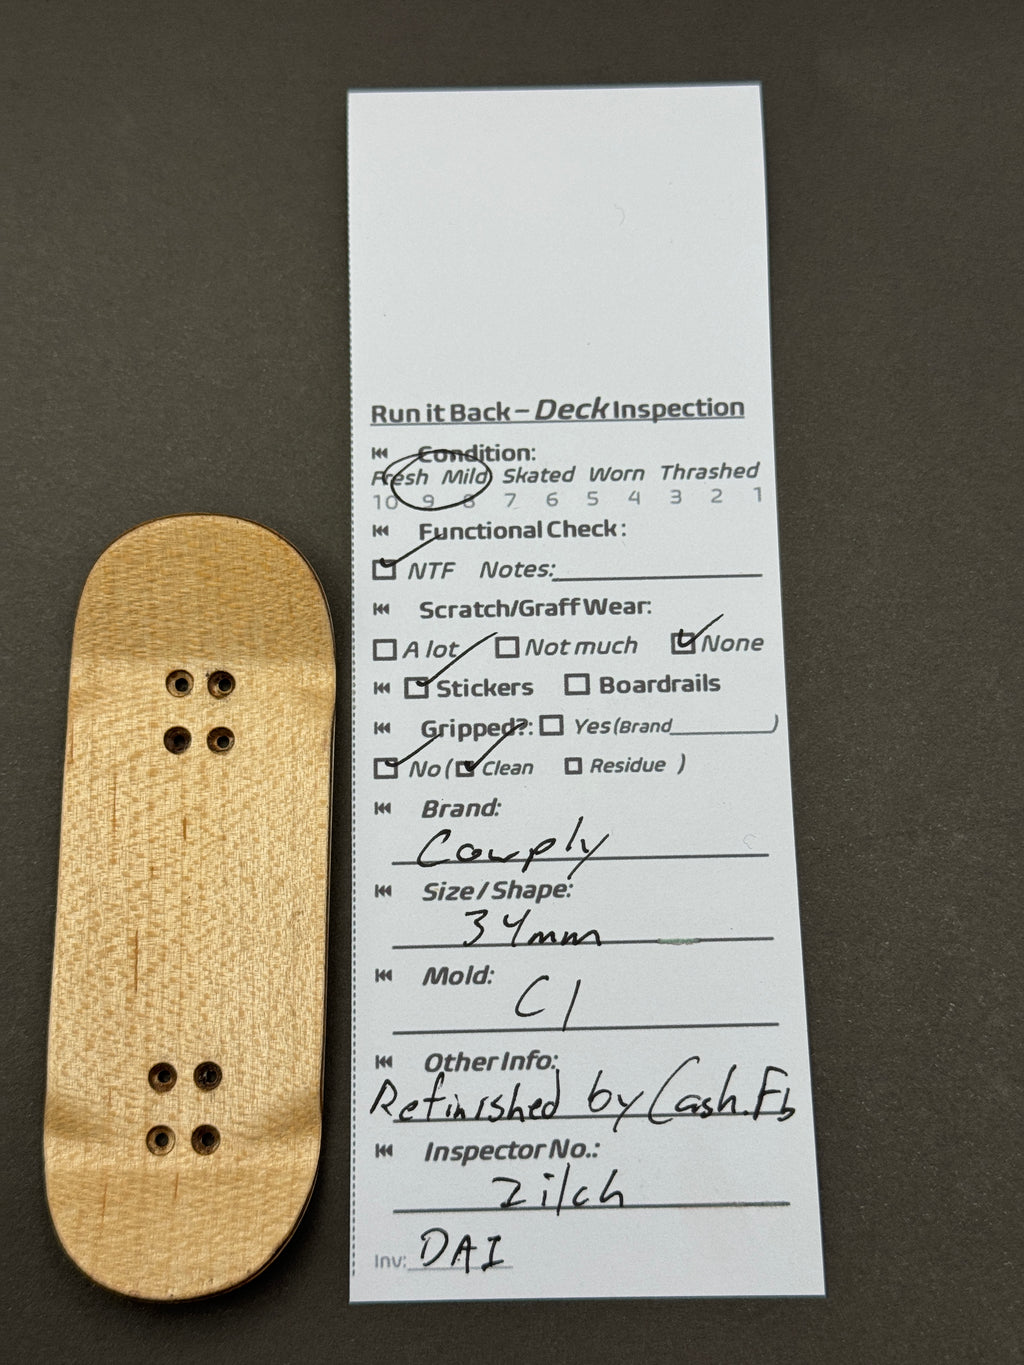 Run it Back – Deck Inspection
Condition:
Fresh Mild Skated Worn Thrashed
10 9 8 7 6 5 4 3 2 1
Functional Check:
NTF Notes:
Scratch/Graff Wear:
A lot Not much None
Stickers Boardrails
Gripped?: Yes (Brand )
No ( Clean Residue )
Brand:
Cowply
Size / Shape:
34mm
Mold:
C1
Other Info:
Refinished by Cash.Fb
Inspector No.:
Zilch
Inv: DAI